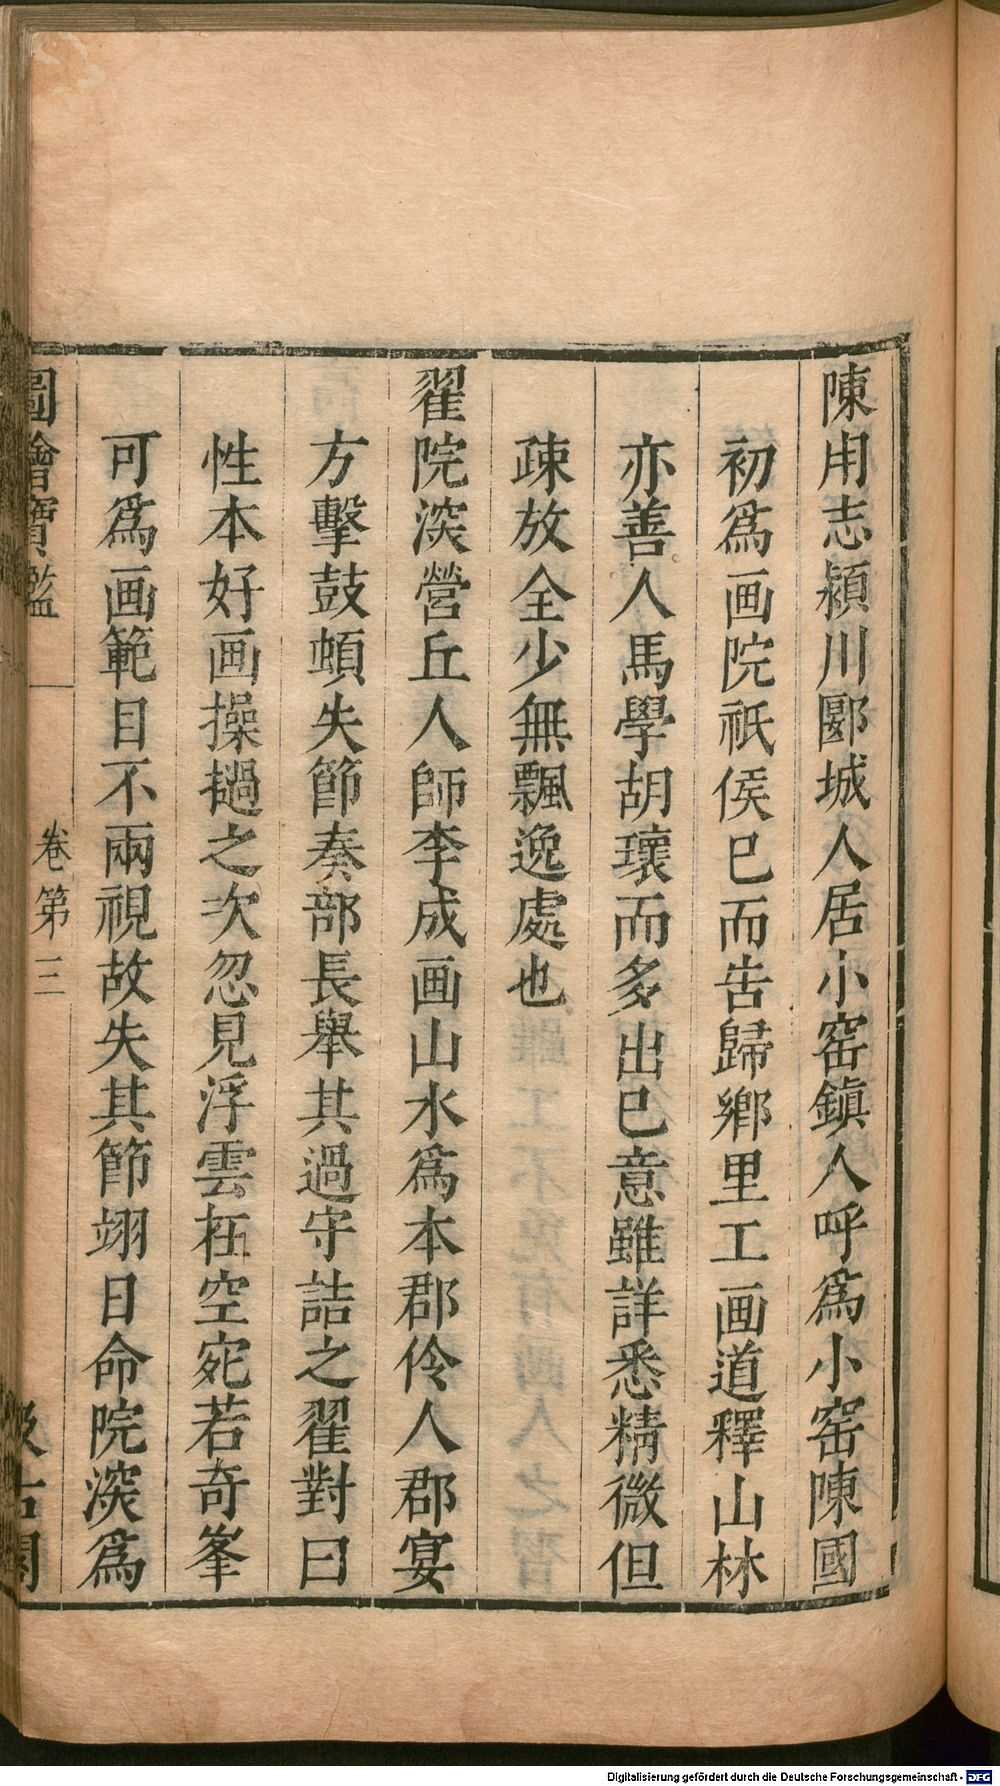 陳用志潁川郾城人居小窑鎮人呼爲小窑陳國
初爲画院祇侯已而告歸鄉里工画道釋山林
亦善人馬學胡瓌而多出已意雖詳悉精微但
疎放全少無飄逸處也
翟院深營丘人師李成画山水爲本郡伶人郡宴
方擊鼓頓失節奏部長舉其過守詰之翟對曰
性本好画操撾之次忽見浮雲在空宛若奇峯
可爲画範目不兩視故失其節翊日命院深爲
圖繪寶鑑
卷第三
汲古閣
Digitalisierung gefördert durch die Deutsche Forschungsgemeinschaft - DFG